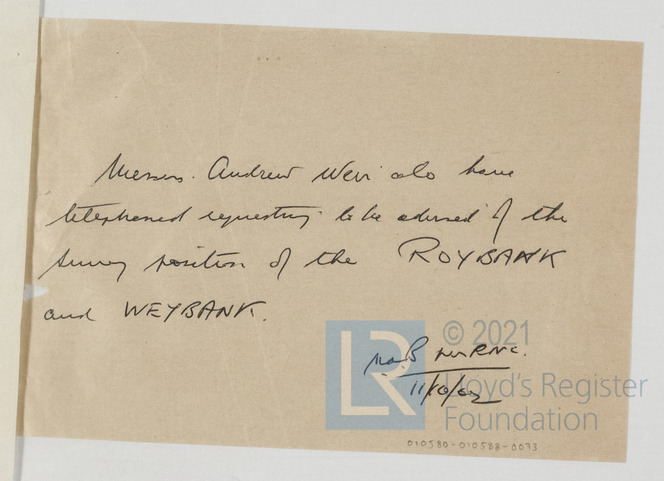 Messrs. Andrew Weir also have
telephoned requesting to be advised of the
survey position of the ROYBANK
and WEYBANK.
© 2021
LR
Lloyd's Register
Foundation
010580-010588-0073